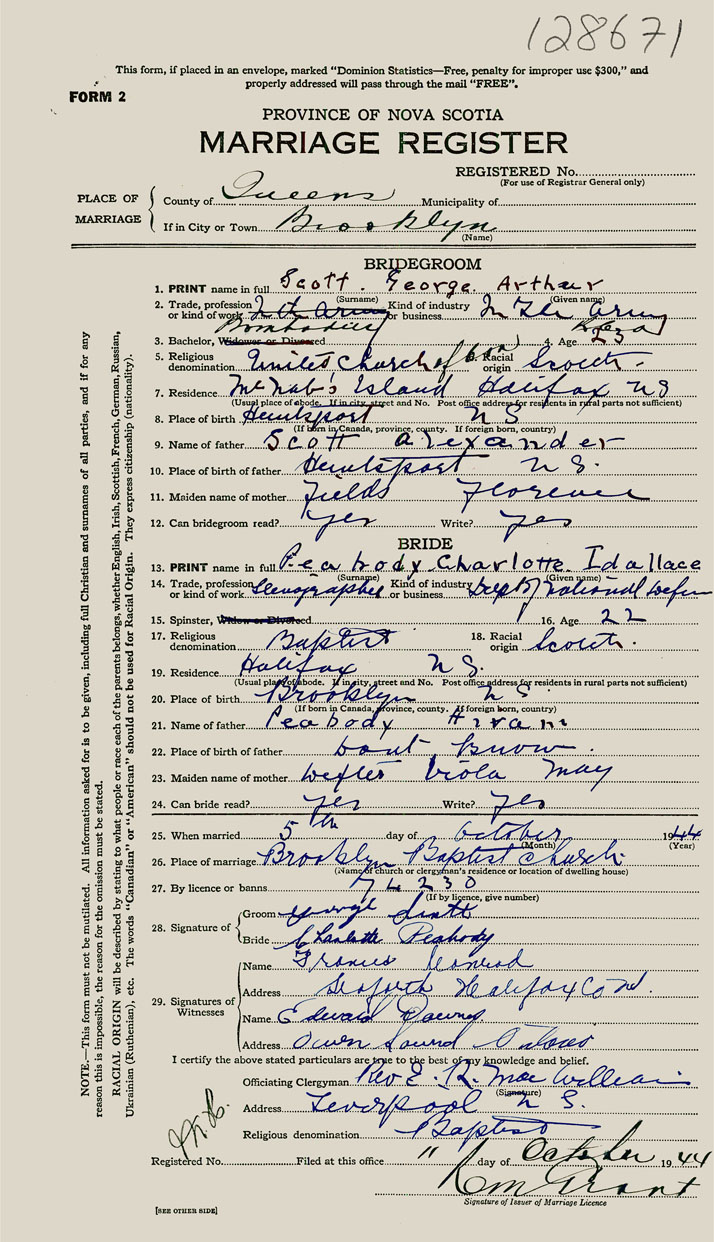 128671
This form, if placed in an envelope, marked "Dominion Statistics—Free, penalty for improper use $300," and
properly addressed will pass through the mail "FREE".
FORM 2
PROVINCE OF NOVA SCOTIA
MARRIAGE REGISTER
REGISTERED No.
(For use of Registrar General only)
PLACE OF MARRIAGE
County of Queens Municipality of
If in City or Town Brooklyn
(Name)
BRIDEGROOM
1. PRINT name in full Scott. George Arthur
(Surname) (Given name)
2. Trade, profession or kind of work Bombadier Kind of industry or business In The Army
3. Bachelor, Widower or Divorced 4. Age 23
5. Religious denomination United Church of 6. Racial origin Scotch.
7. Residence McNab's Island Halifax NS
(Usual place of abode. If in city, street and No. Post office address for residents in rural parts not sufficient)
8. Place of birth Hantsport N S
(If born in Canada, province, county. If foreign born, country)
9. Name of father Scott Alexander
10. Place of birth of father Hantsport N S.
11. Maiden name of mother Fields Florence
12. Can bridegroom read? Yes Write? Yes
BRIDE
13. PRINT name in full Peabody Charlotte Idallace
(Surname) (Given name)
14. Trade, profession or kind of work Stenographer Kind of industry or business Dept of National Defence
15. Spinster, Widow or Divorced 16. Age 22
17. Religious denomination Baptist 18. Racial origin Scotch.
19. Residence Halifax N S.
(Usual place of abode. If in city, street and No. Post office address for residents in rural parts not sufficient)
20. Place of birth Brooklyn N S
(If born in Canada, province, county. If foreign born, country)
21. Name of father Peabody Hiram
22. Place of birth of father Dont Know.
23. Maiden name of mother Viola May
24. Can bride read? Yes Write? Yes
25. When married 5th day of October 1944
(Month) (Year)
26. Place of marriage Brooklyn Baptist Church
(Name of church or clergyman's residence or location of dwelling house)
27. By licence or banns 74230
(If by licence, give number)
28. Signature of
Groom George Scott
Bride Charlotte Peabody
29. Signatures of Witnesses
Name Frances Conrad
Address Seaforth Halifax Co
Name Edward Downs
Address Owen Sound Ontario
I certify the above stated particulars are true to the best of my knowledge and belief.
Officiating Clergyman Rev E. R. MacWilliam
(Signature)
Address Liverpool N S.
Religious denomination Baptist
Registered No. Filed at this office 11 day of October 1944
Signature of Issuer of Marriage Licence
[SEE OTHER SIDE]
NOTE.—This form must not be mutilated. All information asked for is to be given, including full Christian and surnames of all parties, and if for any
reason this is impossible, the reason for the omission must be stated.
RACIAL ORIGIN will be described by stating to what people or race each of the parents belongs, whether English, Irish, Scottish, French, German, Russian,
Ukrainian (Ruthenian), etc. The words "Canadian" or "American" should not be used for Racial Origin. They express citizenship (nationality).